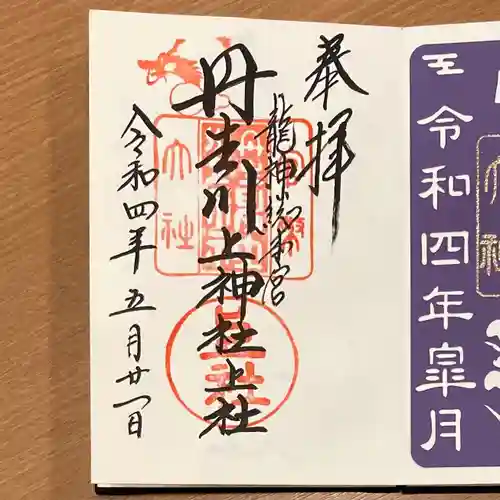 奉拝
龍神総本宮
丹生川上神社上社
令和四年五月廿一日
大社
上社
令和四年皐月